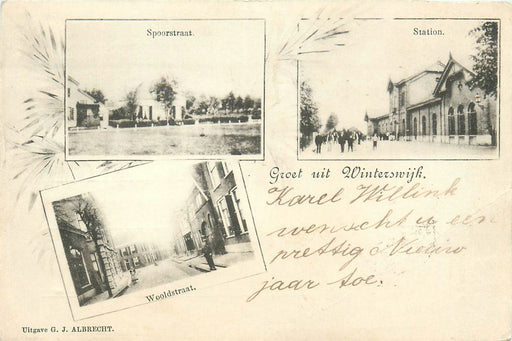 Spoorstraat.
Station.
Groet uit Winterswijk.
Karel Willink
wenscht u een
prettig Nieuw
jaar toe.
Wooldstraat.
Uitgave G. J. ALBRECHT.